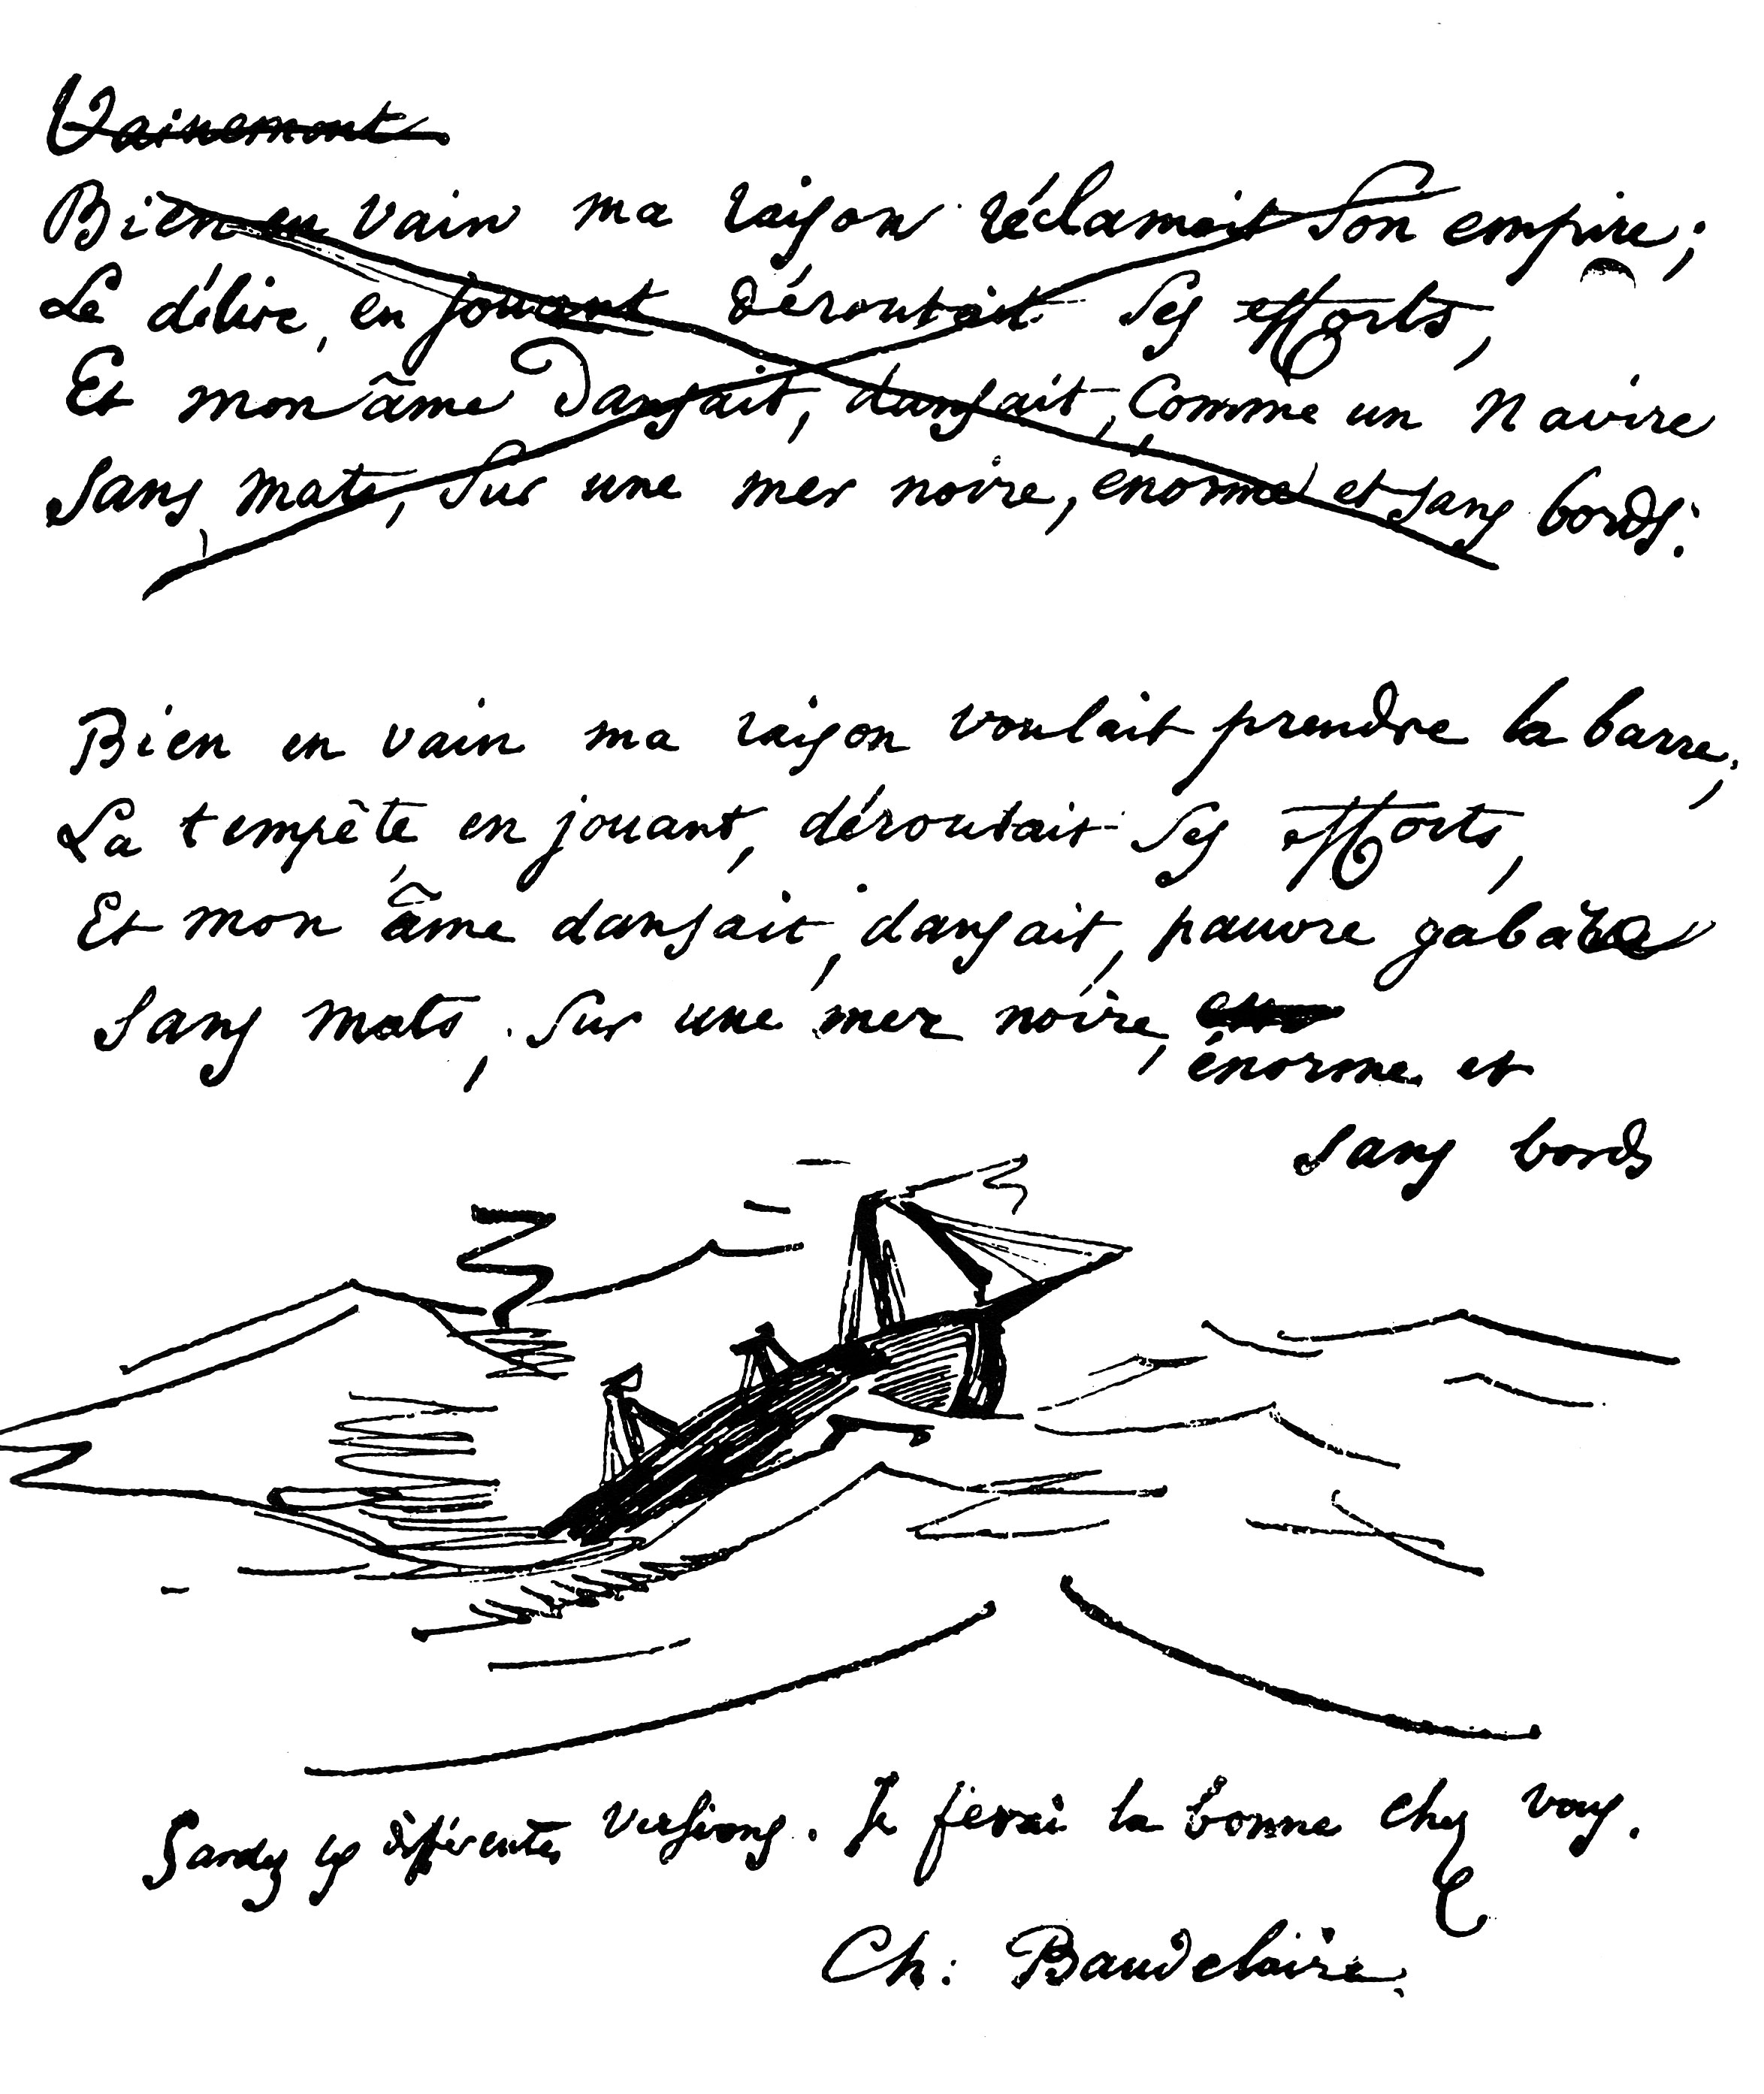 Vainement
Bien en vain ma raison réclamait son empire;
Le délire, en jouant déroutait ses efforts,
Et mon âme dansait, dansait, comme un navire
Sans mats, sur une mer noire, énorme et sans bords.
Bien en vain ma raison voulait prendre la barre;
La tempête en jouant, déroutait ses efforts,
Et mon âme dansait, dansait, pauvre gabare
Sans mats, sur une mer noire,
énorme et
sans bords
Gardez les différentes versions. Je ferai la bonne chez vous.
Ch: Baudelaire.